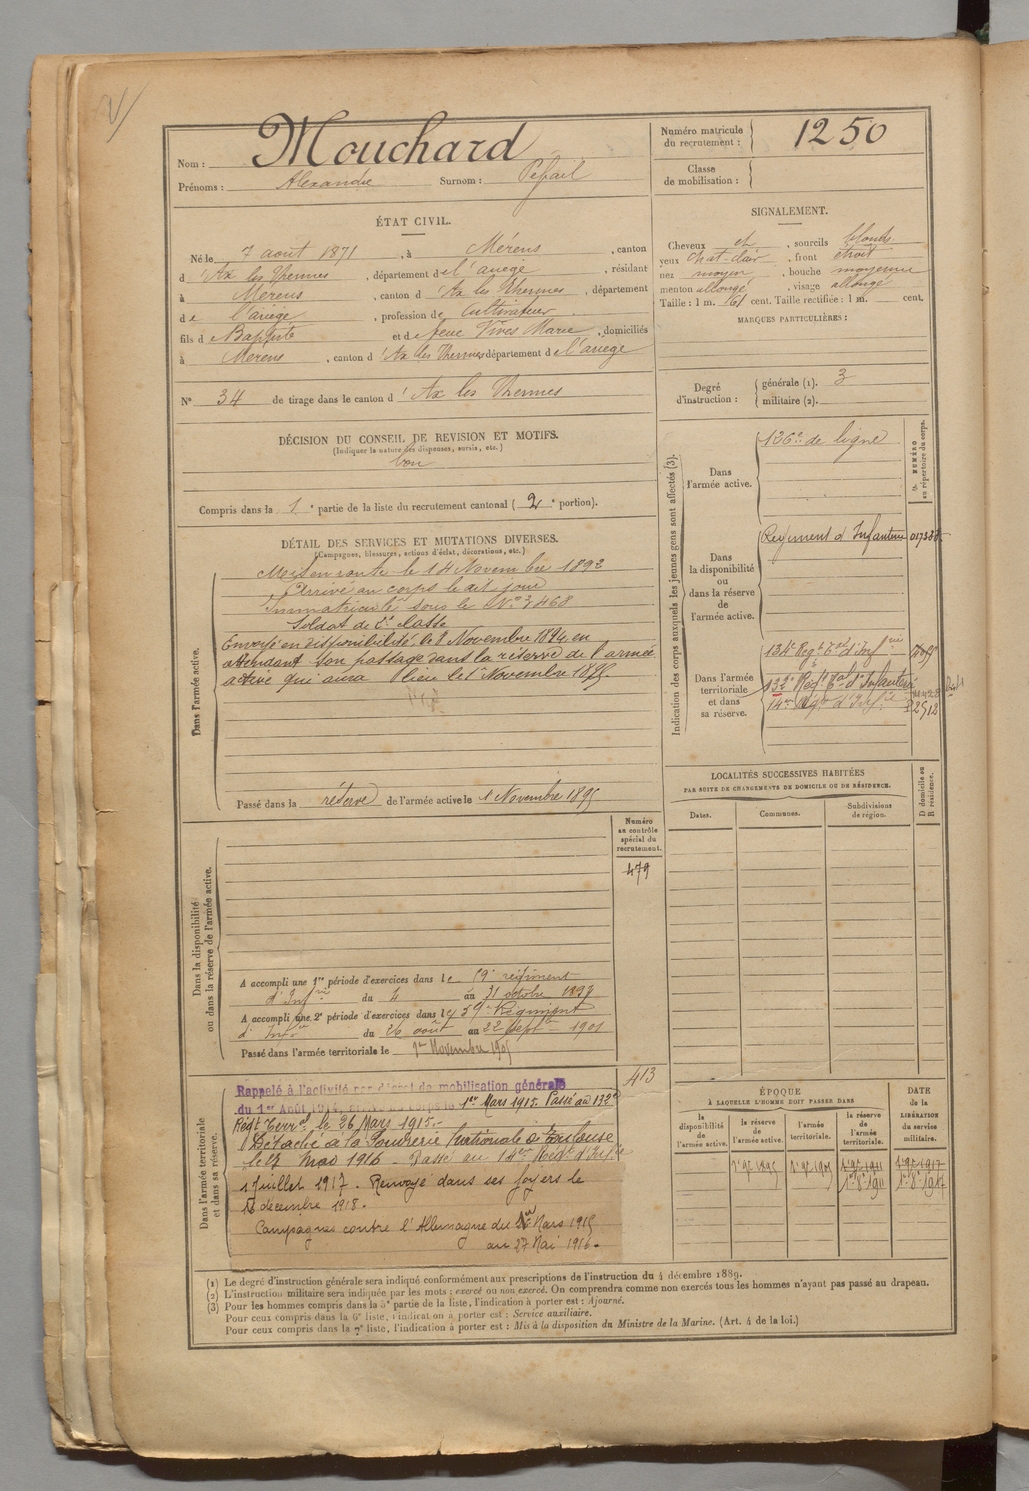 Nom : Mouchard
Prénoms : Alexandre Surnom : Pefail
Numéro matricule du recrutement : 1250
Classe de mobilisation :
ÉTAT CIVIL.
Né le 7 août 1871, à Mérens, canton
d'Ax les Thermes, département de l'ariège, résidant
à Mérens, canton d'Ax les Thermes, département
de l'ariège, profession de cultivateur
fils de Baptiste et de feue Vives Marie, domiciliés
à Merens, canton d'Ax les Thermes département de l'ariege
N° 34 de tirage dans le canton d'Ax les Thermes
DÉCISION DU CONSEIL DE REVISION ET MOTIFS.
(Indiquer la nature des dispenses, sursis, etc.)
bon
Compris dans la 1e partie de la liste du recrutement cantonal (2e portion).
SIGNALEMENT.
Cheveux et, sourcils blonds
yeux chat-clair, front étroit
nez moyen, bouche moyenne
menton allongé, visage allongé
Taille : 1 m. 61 cent. Taille rectifiée : 1 m. cent.
MARQUES PARTICULIÈRES :
Degré d'instruction : générale (1). 3
militaire (2).
DÉTAIL DES SERVICES ET MUTATIONS DIVERSES.
(Campagnes, blessures, actions d'éclat, décorations, etc.)
Dans l'armée active.
Mis en route le 14 Novembre 1892
Arrivé au corps le dit jour
Immatriculé sous le N° 3468
Soldat de 2e classe
Envoyé en disponibilité, le 8 Novembre 1894 en
attendant son passage dans la réserve de l'armée
active qui aura lieu le 1 Novembre 1895.
Passé dans la réserve de l'armée active le 1 Novembre 1895
Indication des corps auxquels les jeunes gens sont affectés (3).
NUMÉRO au répertoire du corps.
Dans l'armée active.
126e de ligne
Dans la disponibilité ou dans la réserve de l'armée active.
Régiment d'Infanterie
Dans l'armée territoriale et dans sa réserve.
134e Régt Tal d'Infrie
132e Régt Tal d'Infanterie
14me Régt d'Infie
Dans la disponibilité ou dans la réserve de l'armée active.
Numéro au contrôle spécial du recrutement.
479
A accompli une 1re période d'exercices dans le 59e régiment
d'Infrie du 4 au 31 octobre 1898
A accompli une 2e période d'exercices dans le 59e Régiment
d'Infie du 26 août au 22 Septbre 1901
Passé dans l'armée territoriale le 1er Novembre 1905
LOCALITÉS SUCCESSIVES HABITÉES
PAR SUITE DE CHANGEMENTS DE DOMICILE OU DE RÉSIDENCE.
Dates. Communes. Subdivisions de région. D domicile ou R résidence.
Dans l'armée territoriale et dans sa réserve.
413
Rappelé à l'activité par décret de mobilisation générale
du 1er Août 1914, arrivé au corps le 1er Mars 1915. Passé au 132e
Régt Terral le 26 Mars 1915.
Détaché à la Poudrerie Nationale de Toulouse
le 27 Mai 1916 - Passé au 14me Régt d'Infie
1 Juillet 1917. Renvoyé dans ses foyers le
18 décembre 1918.
Campagnes contre l'Allemagne du 1er Mars 1915
au 27 Mai 1916.
ÉPOQUE
À LAQUELLE L'HOMME DOIT PASSER DANS
la disponibilité de l'armée active. la réserve de l'armée active. l'armée territoriale. la réserve de l'armée territoriale.
DATE de la LIBÉRATION du service militaire.
1er 9e 1895 1er 9e 1905 1er 9e 1911 1er 9e 1917
1er 8e 1911 1er 8e 1917
(1) Le degré d'instruction générale sera indiqué conformément aux prescriptions de l'instruction du 4 décembre 1889.
(2) L'instruction militaire sera indiquée par les mots : exercé ou non exercé. On comprendra comme non exercés tous les hommes n'ayant pas passé au drapeau.
(3) Pour les hommes compris dans la 5e partie de la liste, l'indication à porter est : Ajourné.
Pour ceux compris dans la 6e liste, l'indication à porter est : Service auxiliaire.
Pour ceux compris dans la 7e liste, l'indication à porter est : Mis à la disposition du Ministre de la Marine. (Art. 4 de la loi.)